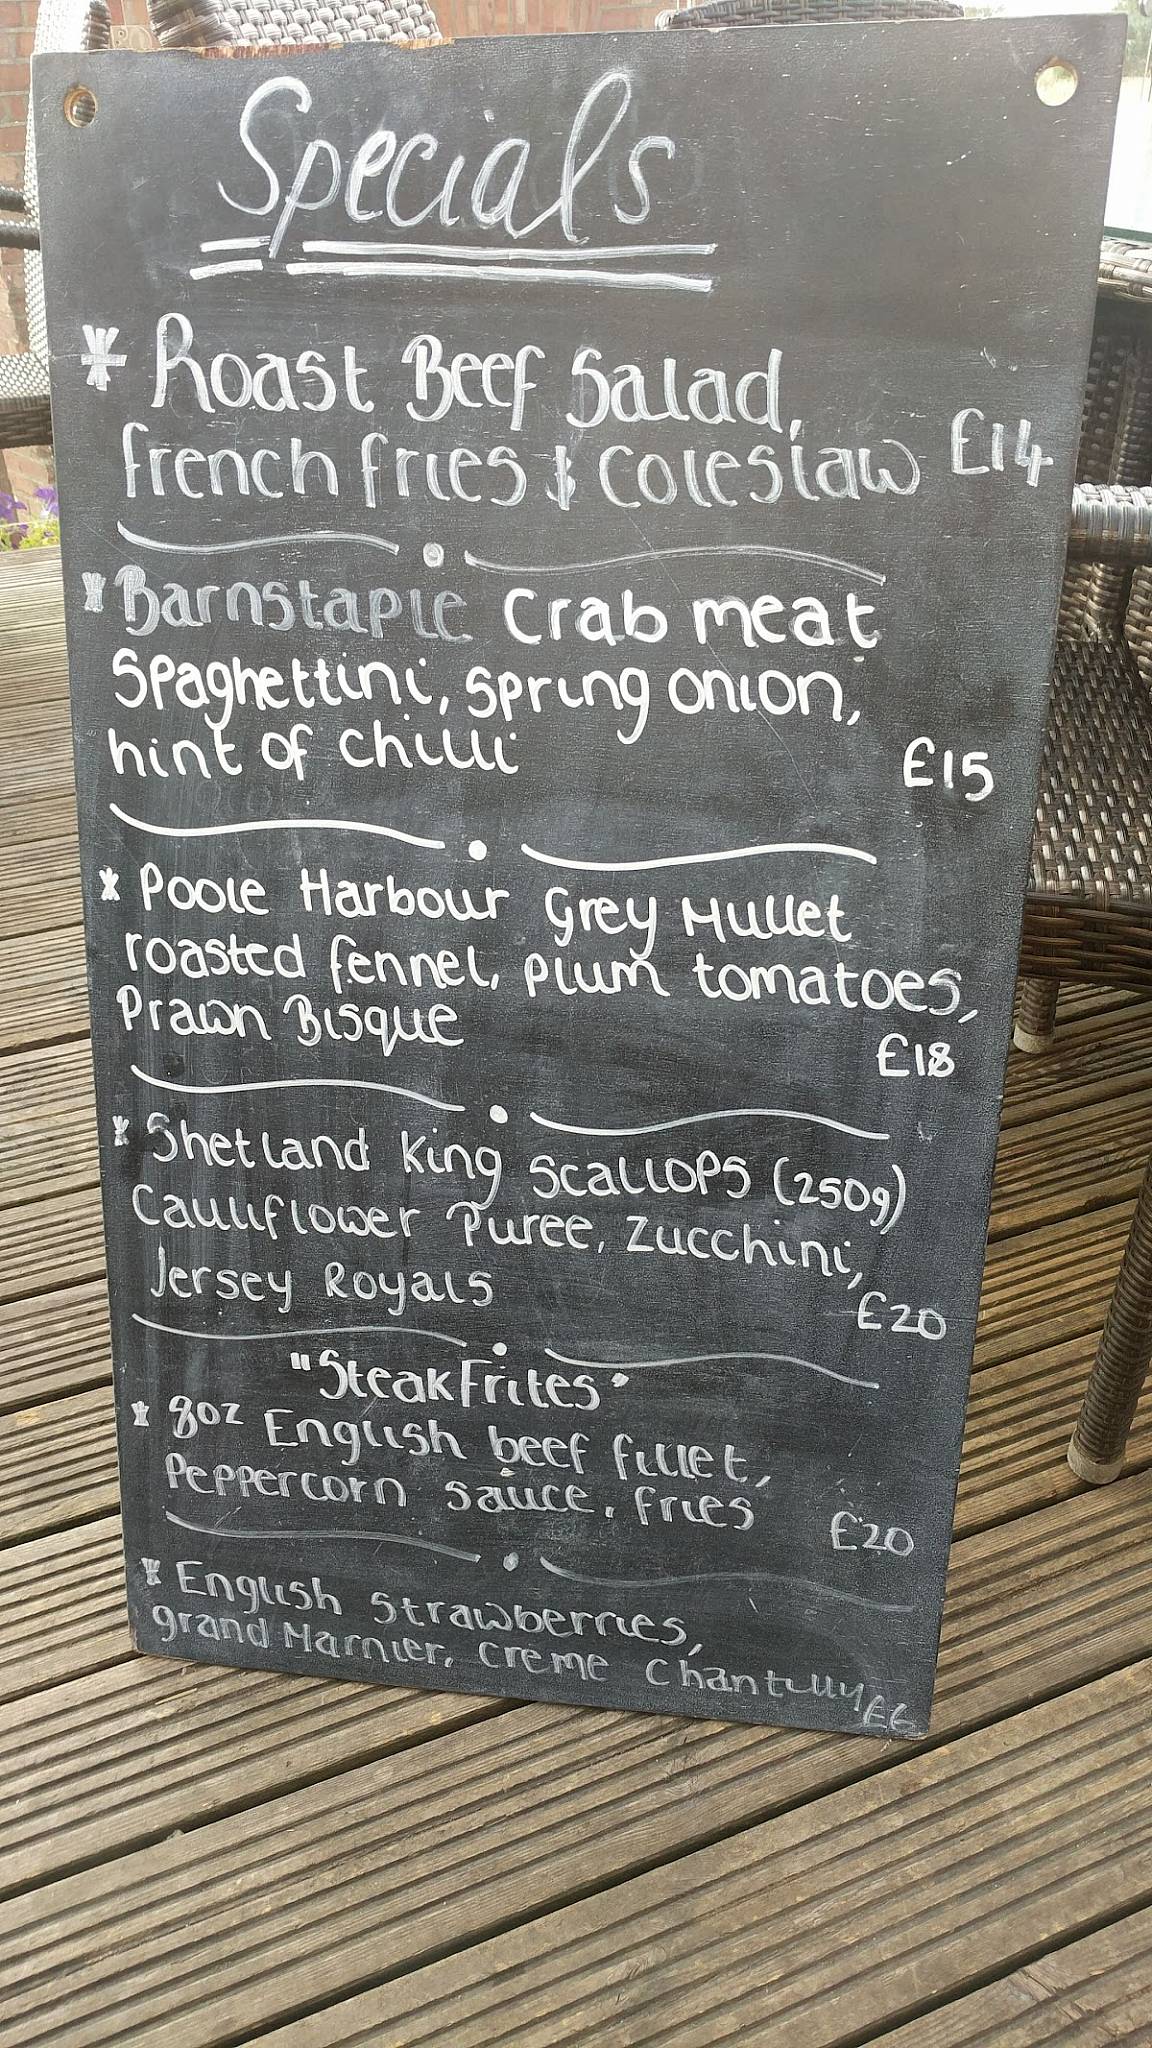 Specials
* Roast Beef Salad,
french fries & Coleslaw £14
* Barnstaple Crab meat
Spaghettini, spring onion,
hint of chilli £15
* Poole Harbour Grey Mullet
roasted fennel, plum tomatoes,
Prawn Bisque £18
* Shetland King Scallops (250g)
Cauliflower Puree, Zucchini,
Jersey Royals £20
"Steak Frites"
* 8oz English beef fillet,
Peppercorn sauce, fries £20
* English Strawberries,
grand Marnier, creme Chantilly £6